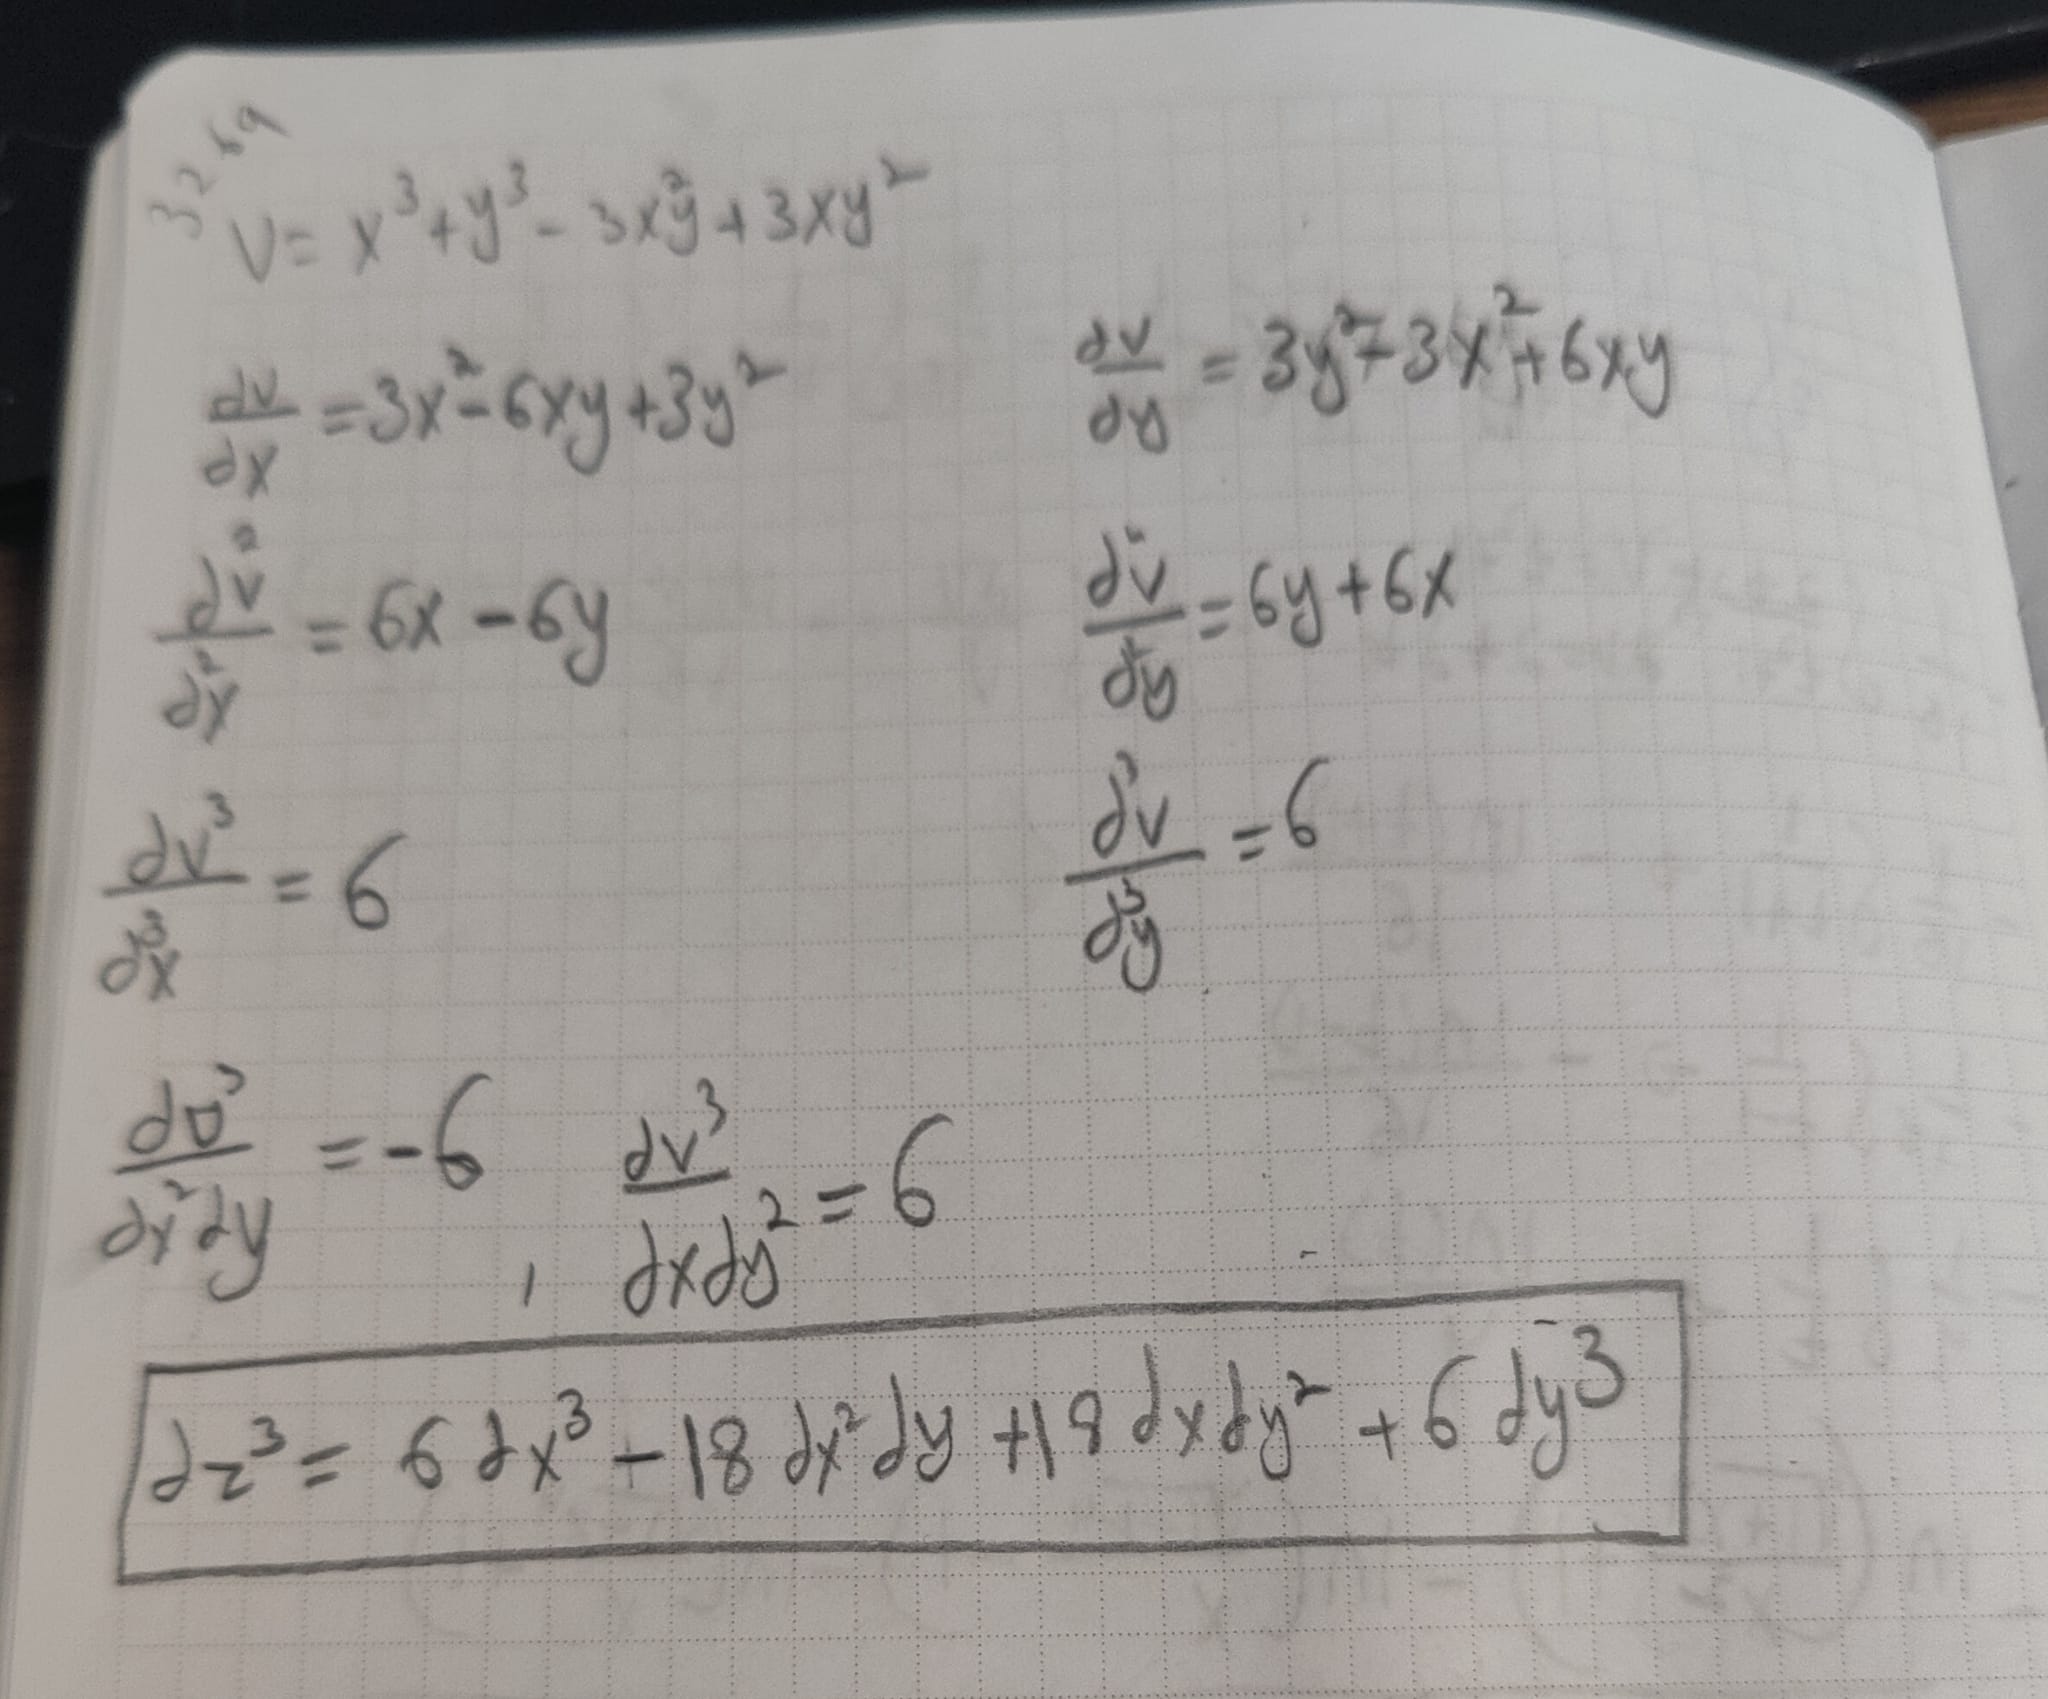 3269
V= x³+y³-3x²y+3xy²
dv/dx =3x²-6xy+3y²
dv/dy =3y²-3x²+6xy
dv²/dx² = 6x-6y
d²v/d²y =6y+6x
dv³/d³x = 6
d³v/d³y =6
dv³/dx²dy =-6 , dv³/dxdy² =6
dz³= 6dx³-18dx²dy+18dxdy²+6dy³